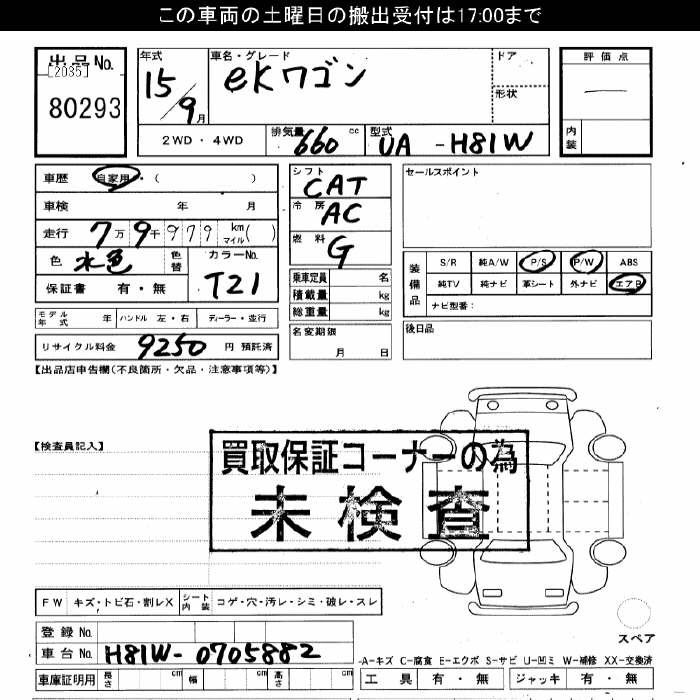 この車両の土曜日の搬出受付は17:00まで
出品No.
[2035]
80293
年式
15/9月
車名・グレード
ekワゴン
ドア
形状
評価点
内装
2WD・4WD
排気量 660 cc
型式 UA -H81W
車歴 自家用・( )
車検 年 月
走行 7万9千979 km マイル( )
色 水色 色替
カラーNo. T21
保証書 有・無
シフト CAT
冷房 AC
燃料 G
乗車定員 名
積載量 kg
総重量 kg
名変期限 月 日
セールスポイント
装備品
S/R 純A/W P/S P/W ABS
純TV 純ナビ 革シート 外ナビ エアB
ナビ型番:
後日品
モデル年式 年 ハンドル 左・右 ディーラー・並行
リサイクル料金 9250 円 預託済
【出品店申告欄(不良箇所・欠品・注意事項等)】
【検査員記入】
買取保証コーナーの為
未検査
FW キズ・トビ石・割レX シート内装 コゲ・穴・汚レ・シミ・破レ・スレ
登録No.
車台No. H81W-0705882
車庫証明用 長さ cm 幅 cm 高さ cm
スペア
-A-キズ C-腐食 E-エクボ S-サビ U-凹ミ W-補修 XX-交換済
工具 有・無 ジャッキ 有・無